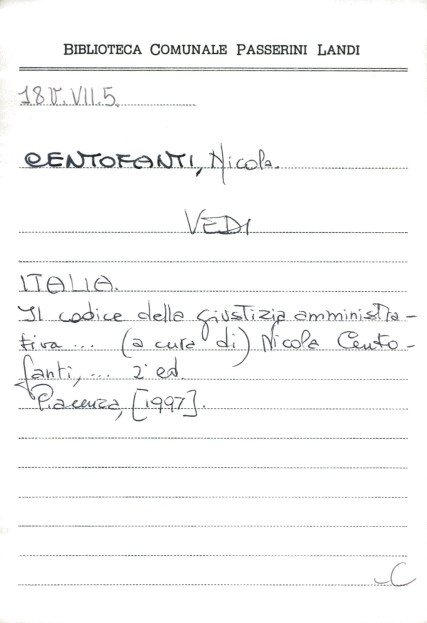 BIBLIOTECA COMUNALE PASSERINI LANDI
18V.VII.5.
CENTOFANTI, Nicola.
VEDI
ITALIA.
Il codice della giustizia amministra-
tiva ... (a cura di) Nicola Cento-
fanti, ... 2ª ed.
Piacenza, [1997].
C